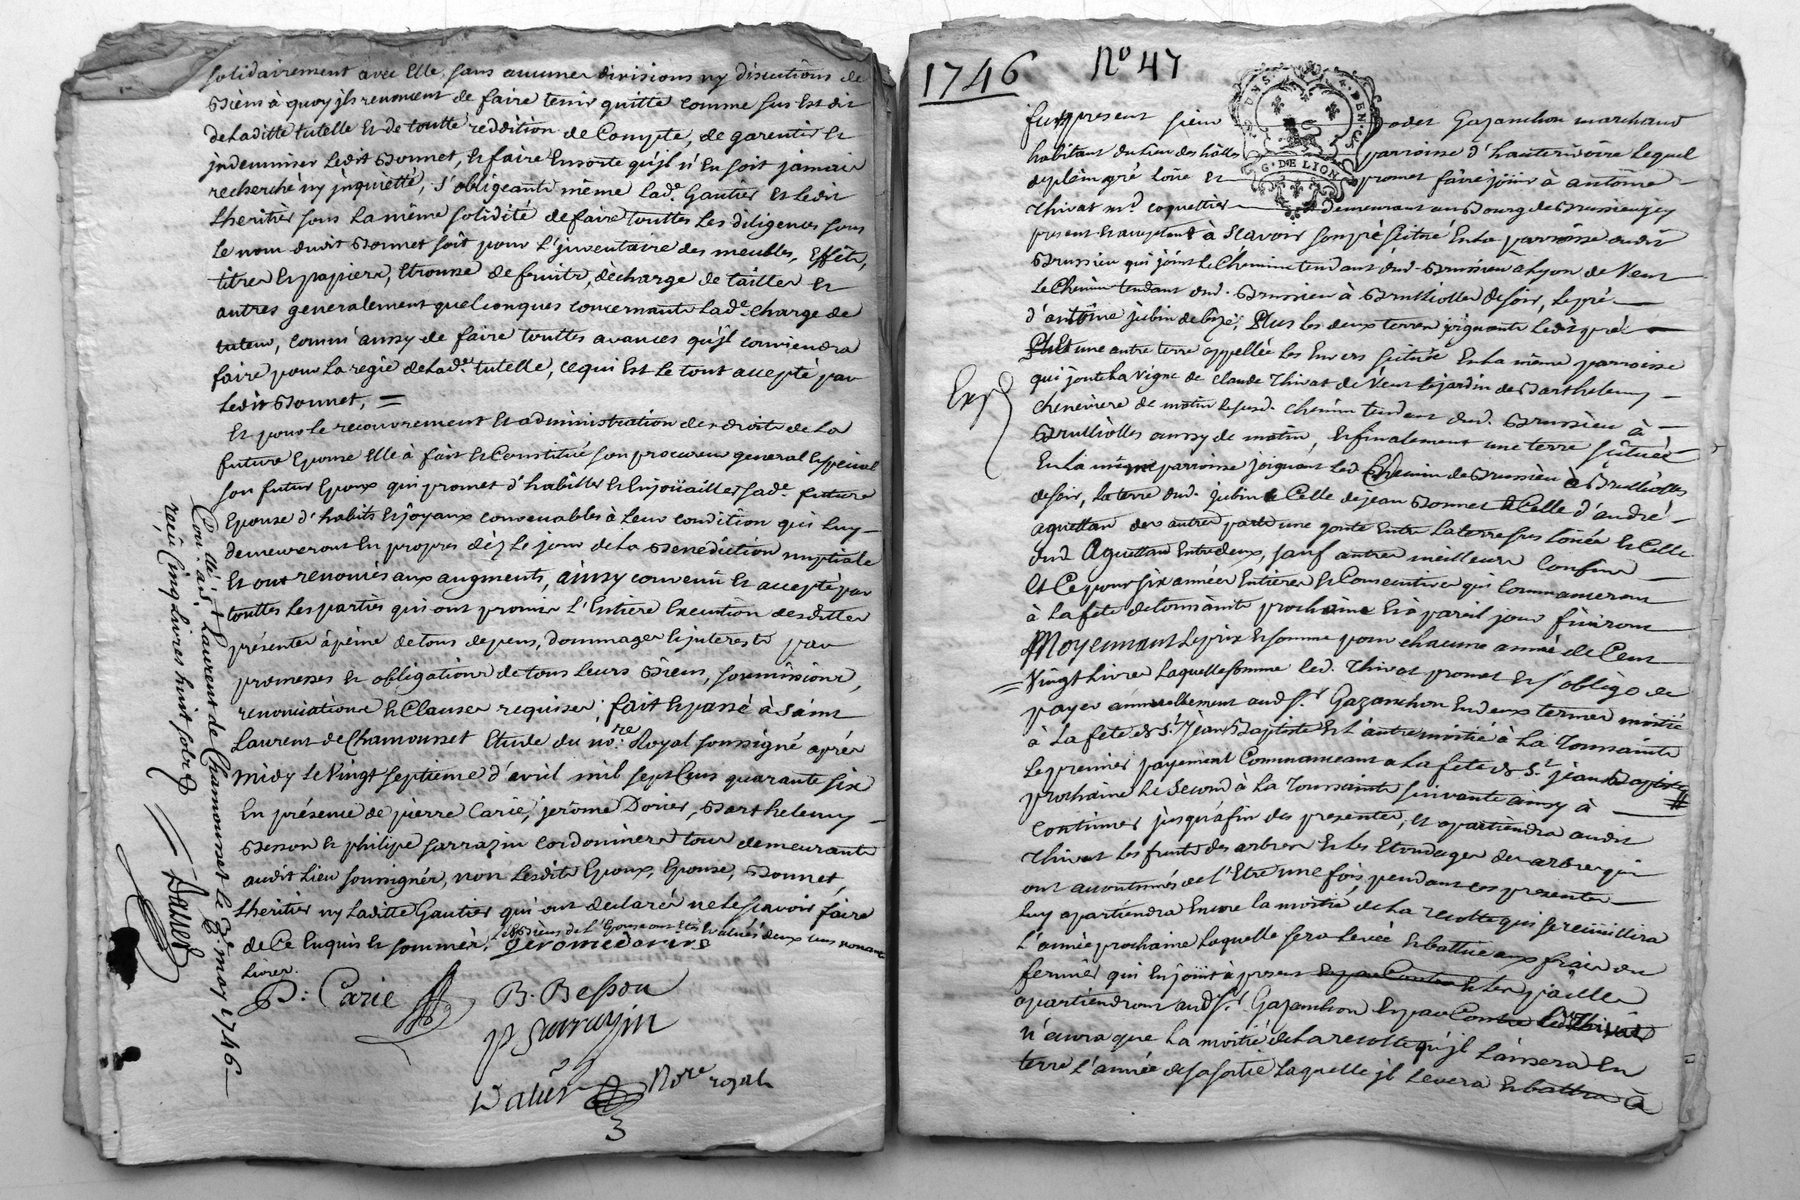 solidairement avec Elle, sans aucunes divisions ny discutions de
Biens à quoy ils renoncent de faire tenir quitte comme sus Est dit
de Laditte tutelle Et de toutte reddition de Compte, de garentir Et
jndemniser Ledit Bonnet, Et faire Ensorte qu'jl n'En soit jamais
recherché ny jnquietté, s'obligeants même Lade. Gautier Et Ledit
Lheritier sous La même solidité de faire touttes Les diligences sous
Le nom dudit Bonnet soit pour L'jnventaire des meubles, Effets,
titres Et papiers, Etrousse de fruits, décharge de tailles Et
autres generalement quelconques concernants Lade. charge de
tuteur, comm'aussy de faire touttes avances qu'jl conviendra
faire pour La regie de Lade. tutelle, ce qui Est Le tout accepté par
Ledit Bonnet, =
Et pour Le recouvrement Et administration des droits de La
future Epouse Elle à fait Et Constitué son procureur general Et special
son futur Epoux qui promet d'habiller Et Enjoüailler sade. future
Epouse d'habits Et joyaux convenables à Leur condition qui Luy
demeureront En propres dèz Le jour de La Benediction nuptiale
Et ont renoncés aux augments, ainsy convenü Et accepté par
touttes Les parties qui ont promis L'Entiere Execution desdittes
presentes à peine de tous depens, dommages Et jnterests par
promesses Et obligations de tous Leurs Biens, soumissions,
renonciations Et Clauses requises, fait Et passé à Saint
Laurent de Chamousset Etude du nore. Royal soussigné après
midy Le Vingt septieme d'avril mil sept Cens quarante six
En présence de pierre Carie, jerôme Dorier, Barthelemy
Besson Et philipe Sarrazin cordonniers tous demeurants
audit Lieu soussignés, non Lesdits Epoux, Epouse, Bonnet,
Lheritier ny Laditte Gautier qui ont declaré ne Le sçavoir faire
de Ce Enquis Et sommés, Les Biens de L'Epouse ont Etés Evalués deux cens
Livres.
gerome dorier
P: Carie
B. Besson
P Sarrazin
Dalier Nore royal
Con.llé à St. Laurent de Chamousset le 3e. may 1746
reçü Cinq Livres huit sols
Dalier
1746
No 47
G. DE LION
fut present sieur Gazanchon marchand
habitant du Lieu des hâlles parroisse d'hauterivoire Lequel
de plein gré Loüe Et promet faire joüir à antoine
Thivat md. coquettier demeurant au Bourg de Brussieu jcy
present Et acceptant à Sçavoir son pré scitué En La parroisse dudit
Brussieu qui joint Le Chemin tendant dud. Brussieu a Lyon de Vent
Le Chemin tendant dud. Brussieu à Brulliolles de soir, Le pré
d'antoine jubin de bize, Plus Les deux terres joignants Ledit pré
Plus une autre terre appellée Les Envers scituée En La même parroisse
qui joute La vigne de Claude Thivat de Vent Le jardin de Barthelemy
Cheneviere de matin Le susd. chemin tendant dud. Brussieu à
Brulliolles aussy de matin, Et finalement une terre scituée
En La même parroisse joignant Led. Chemin de Brussieu à Brulliolles
de soir, La terre dud. jubin Et Celle de jean Bonnet Et Celle d'andré
aguettan des autres parts une goute Entre La terre sus Loüée Et Celle
dud. Aguettan Entredeux, sauf autres meilleurs Confins
Et Ce pour six années Entieres Et Consecutives qui Commanceront
à La fete de toussaints prochaine Et à pareil jour finiront
Moyennant Le prix Et somme pour chacune année de Cent
Vingt Livres Laquelle somme Led. Thivat promet Et s'oblige de
payer annuellement aud. Sr. Gazanchon En deux termes moitié
à La fete de St. Jean Baptiste Et L'autre moitié à La Toussaints
Le premier payement Commanceant a La fete de St. jean Baptiste
prochaine Le Second à La Toussaints suivante ainsy à
Continuer jusqu'à fin des presentes, Et apartiendra audit
Thivat Les fruits des arbres Et Les Etondages des arbres qui
ont accoutumés de L'Etre une fois pendant ces presentes
Luy apartiendra Encore La moitié de La recolte qui se recüeillira
L'année prochaine Laquelle sera Levée Et battue aux frais du
fermier qui En joüit à present Et Les pailles
apartiendront aud. Sr. Gazanchon
n'aura que La moitié de La recolte qu'jl Laissera En
terre L'année de sa sortie Laquelle jl Levera Et battra à
Exp